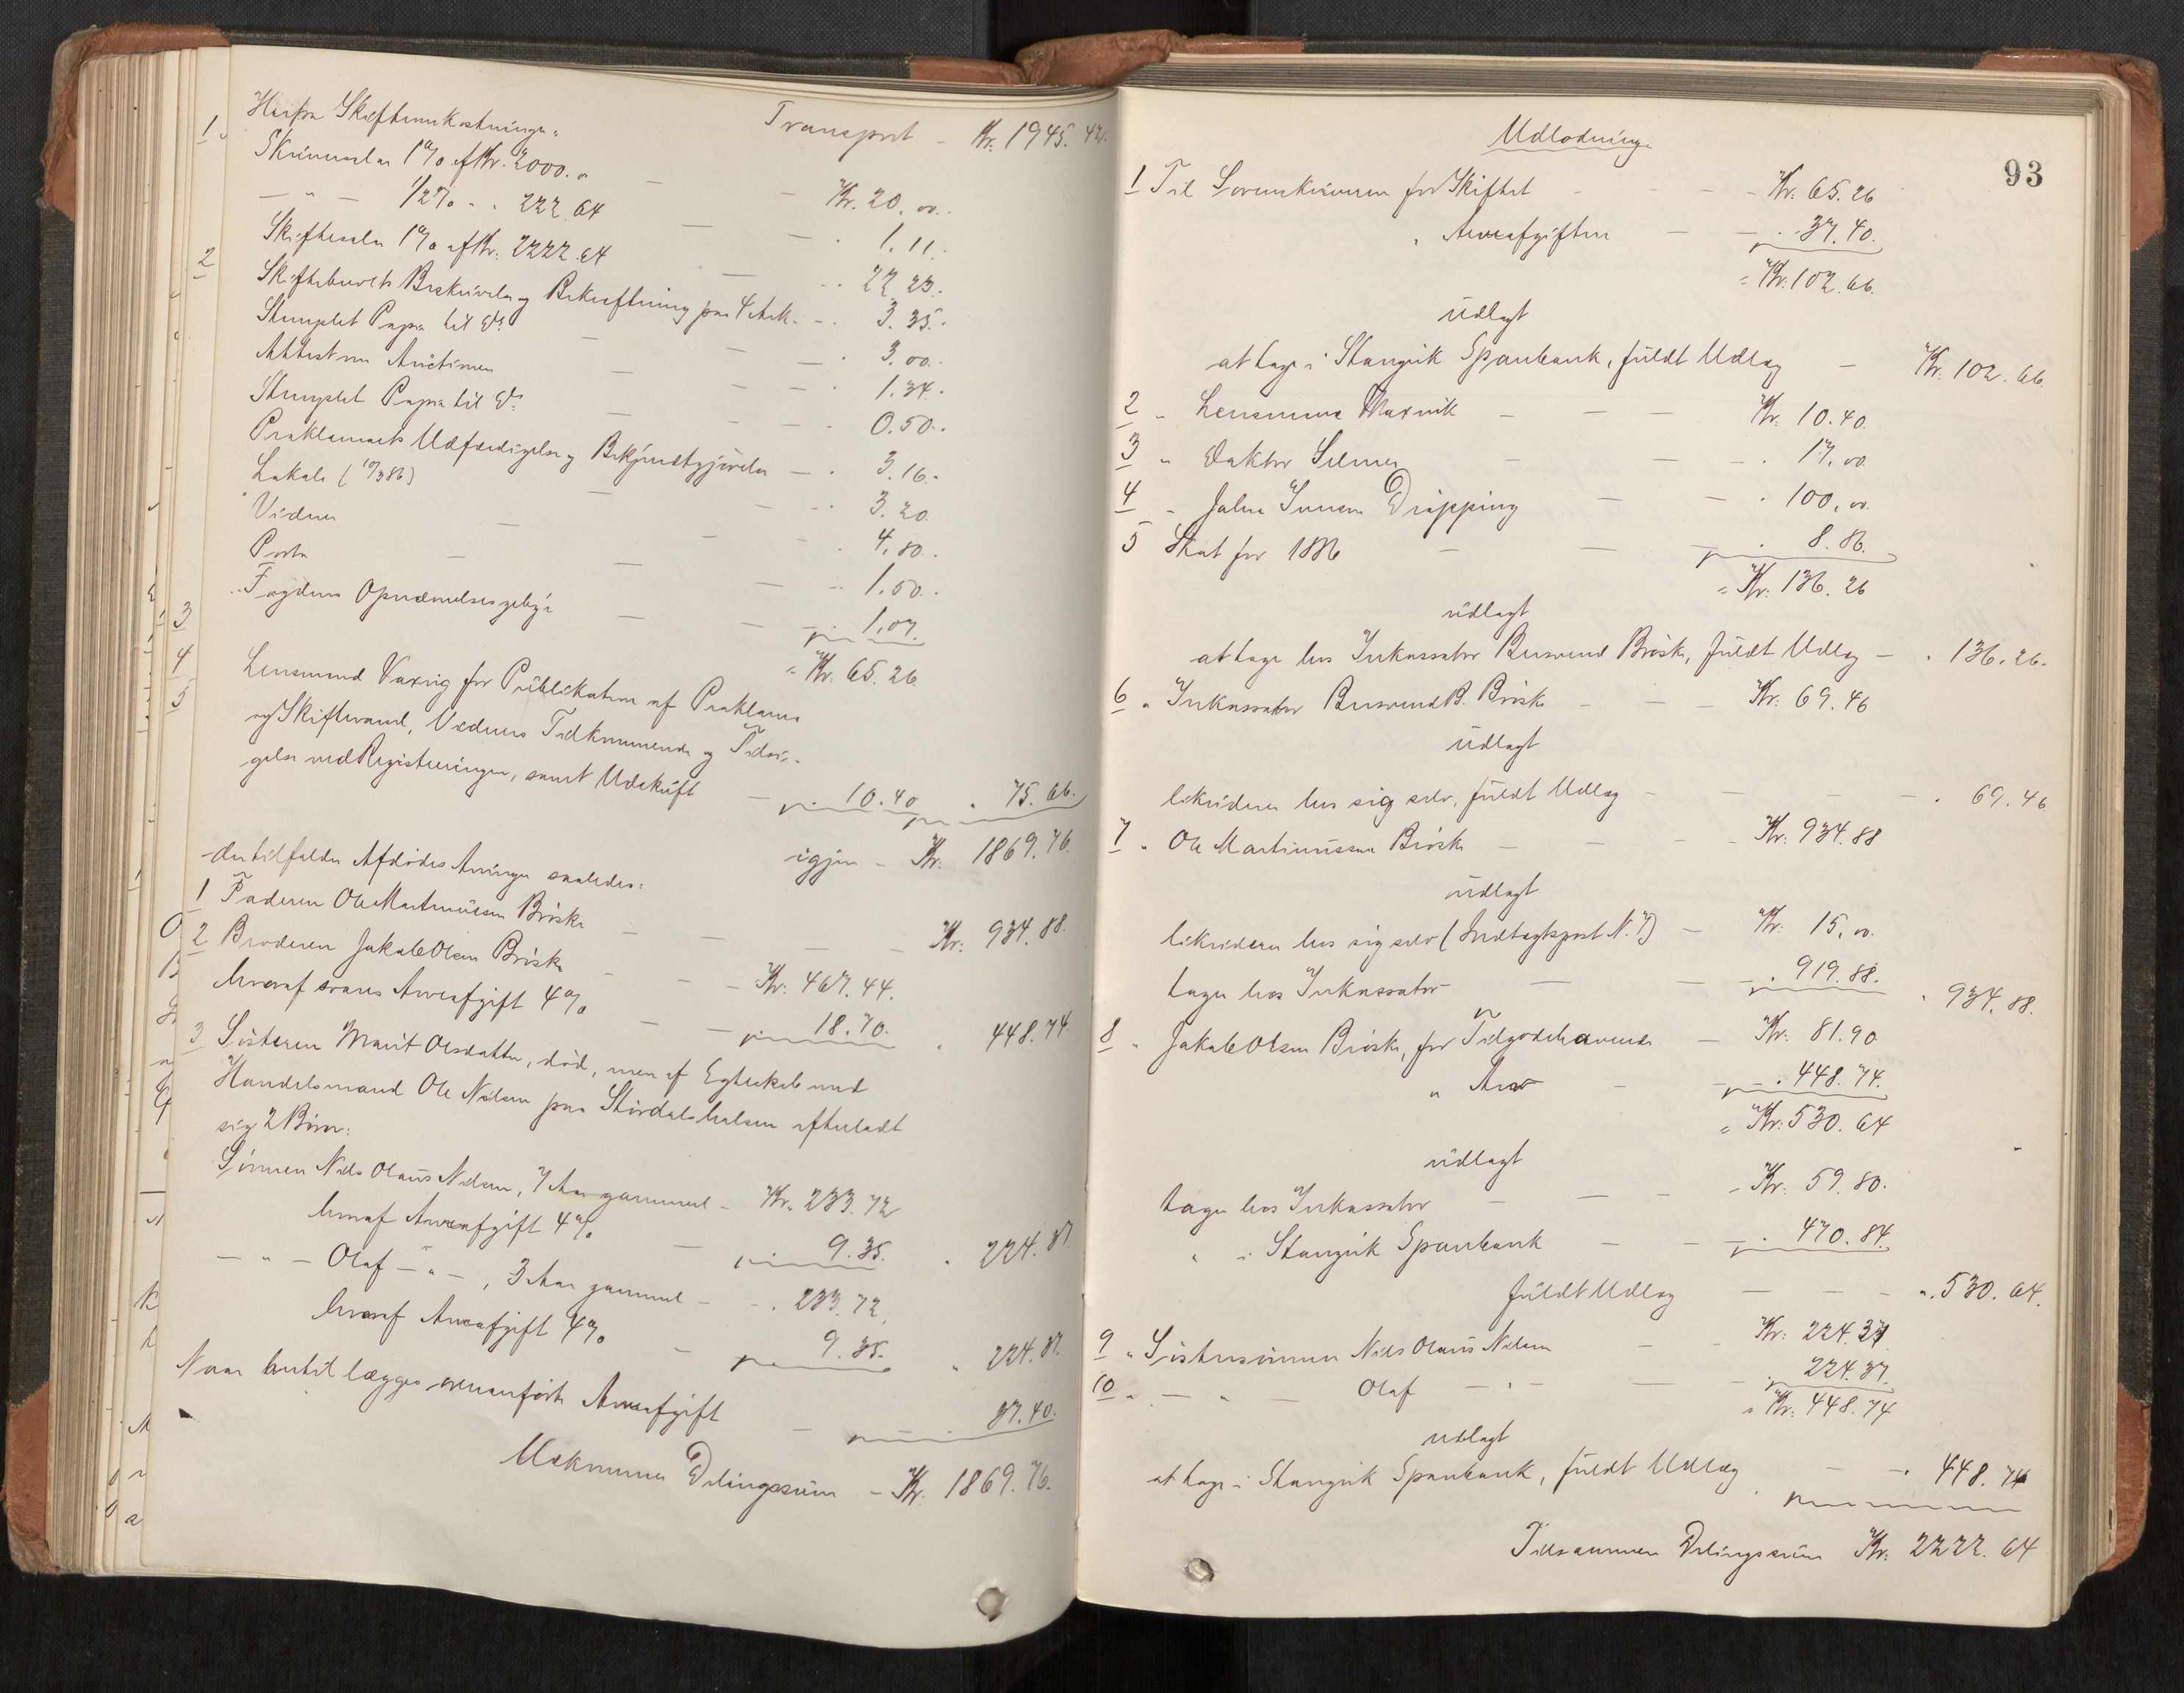 Transport - Kr. 1945.42.
Herfra Skifteomkostninger:
1. Skriversalær 1% af Kr. 2000.00 - Kr. 20.00.
- " - 1/2% " " 222.64 - " 1.11.
Skiftesalær 1% af Kr. 2222.64 - " 22.23.
2 Skiftebrevets Beskrivelse og Bekræftning paa 4 Ark - " 3.35.
Stemplet Papir til Do - " 3.00.
Attest om Auctionen - " 1.34.
Stemplet Papir til Do - " 0.50.
Proklamaets Udfærdigelse og Bekjendtgjørelse - " 3.16.
Lokale ( 10/3 86) - " 3.20
Vidner - " 4.80.
Porto - " 1.50.
3 Fogdens Opnævnelsesgebyr - " 1.07.
= Kr. 65.26
4 Lensmand Vaxvig for Publikation af Proklama
5 og Skiftevarsel, Vidners Tidkommende og Tilsi-
gelse ved Registreringen, samt Udskrift - " 10.40 " 75.66.
igjen - Kr. 1869.76.
der tilfalder Afdødes Arvinger saaledes:
1 Faderen Ole Martinussen Brøske - Kr. 934.88.
2 Broderen Jakob Olsen Brøske - Kr. 467.44.
hvoraf svares Arveafgift 4% - 18.70. " 448.74
3 Søsteren Marit Olsdatter, død, men af Egteskab med
Handelsmand Ole Nilsen paa Stördalshalsen efterladt
sig 2 Børn:
Sønnen Nils Olaus Nilsen, 7 Aar gammel - Kr. 233.72
hvoraf Arveafgift 4% - 9.35. " 224.37
- " - Olaf - " - , 3 Aar gammel - " 233.72
hvoraf Arveafgift 4% - 9.35. " 224.37.
Naar hertil lægges ovenanførte Arveafgift - 37.40.
Udkommer Delingssum - Kr. 1869.76.
93
Udlodning
1 Til Sorenskriveren for Skiftet - Kr. 65.26
" Arveafgiften - " 37.40.
= Kr. 102.66.
udlagt
at tage i Stangvik Sparebank, fuldt Udlæg - Kr. 102.66.
2 " Lensmand Vaxvik - Kr. 10.40.
3 " Doktor Selmer - " 17.00.
4 " John Iversen Drøpping - " 100.00.
5 Skat for 1886 - " 8.86.
= Kr. 136.26
udlagt
at tage hos Inkassator Brusvend Brøske, fuldt Udlæg - " 136.26.
6 " Inkassator Brusvend B. Brøske - Kr. 69.46
udlagt
likviderer hos sig selv, fuldt Udlæg - " 69.46
7 " Ole Martinussen Brøske - Kr. 934.88
udlagt
likviderer hos sig selv (Indtægtspost N. 7) - Kr. 15.00.
tager hos Inkassator - " 919.88. " 934.88.
8 " Jakob Olsen Brøske, for Tilgodehavende - Kr. 81.90
" Arv - " 448.74.
= Kr. 530.64
udlagt
tager hos Inkassator - Kr. 59.80.
" i Stangvik Sparebank - " 470.84.
fuldt Udlæg - " 530.64.
9 " Søstersønnen Nils Olaus Nilsen - Kr. 224.37
10 " - " - Olaf - " - 224.37.
= Kr. 448.74
udlagt
at tage i Stangvik Sparebank, fuldt Udlæg - " 448.74
Tilsammen Delingssum Kr. 2222.64